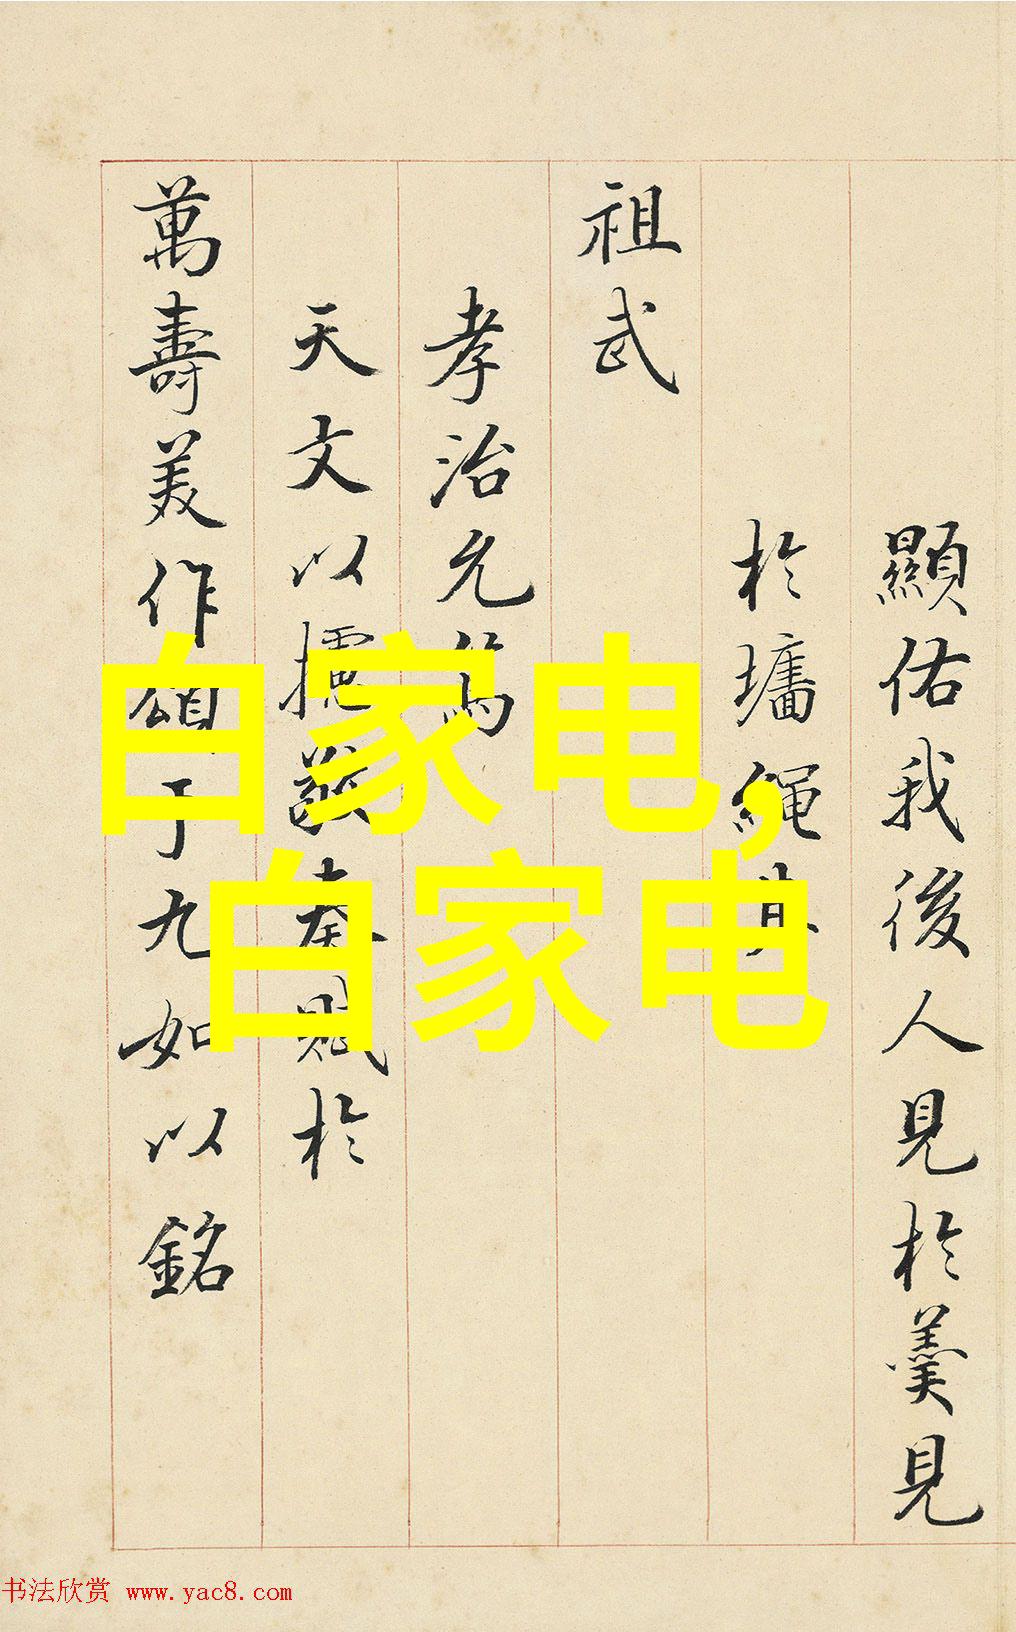 顯佑我後人見於羹見
於墻繩其
祖武
孝治允為
天文以攄奏賦於
萬壽美作頌于九如以銘
白家电,
白家电
书法欣赏 www.yac8.com